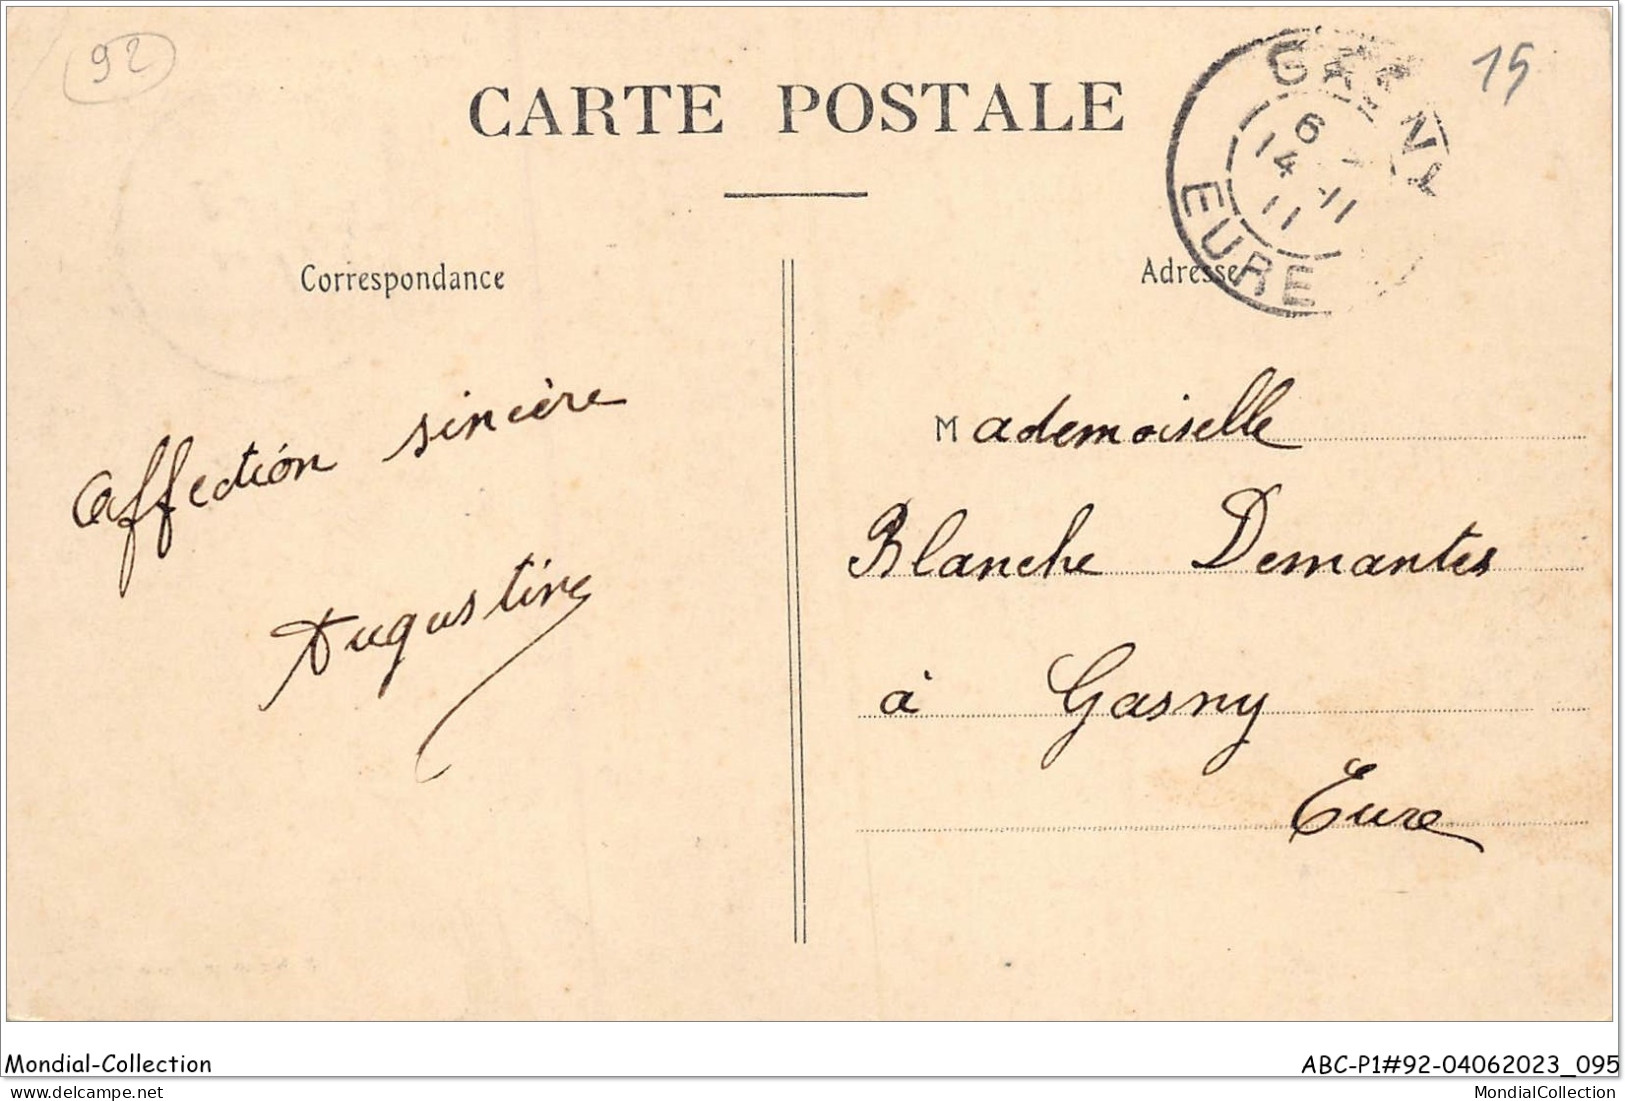 92
15
CARTE POSTALE
6
14 -11
11
EURE
Correspondance
Adresse
Affection sincère
Augustine
Mademoiselle
Blanche Demantes
à Gasny
Eure
Mondial-Collection
ABC-P1#92-04062023_095
www.delcampe.net
MondialCollection